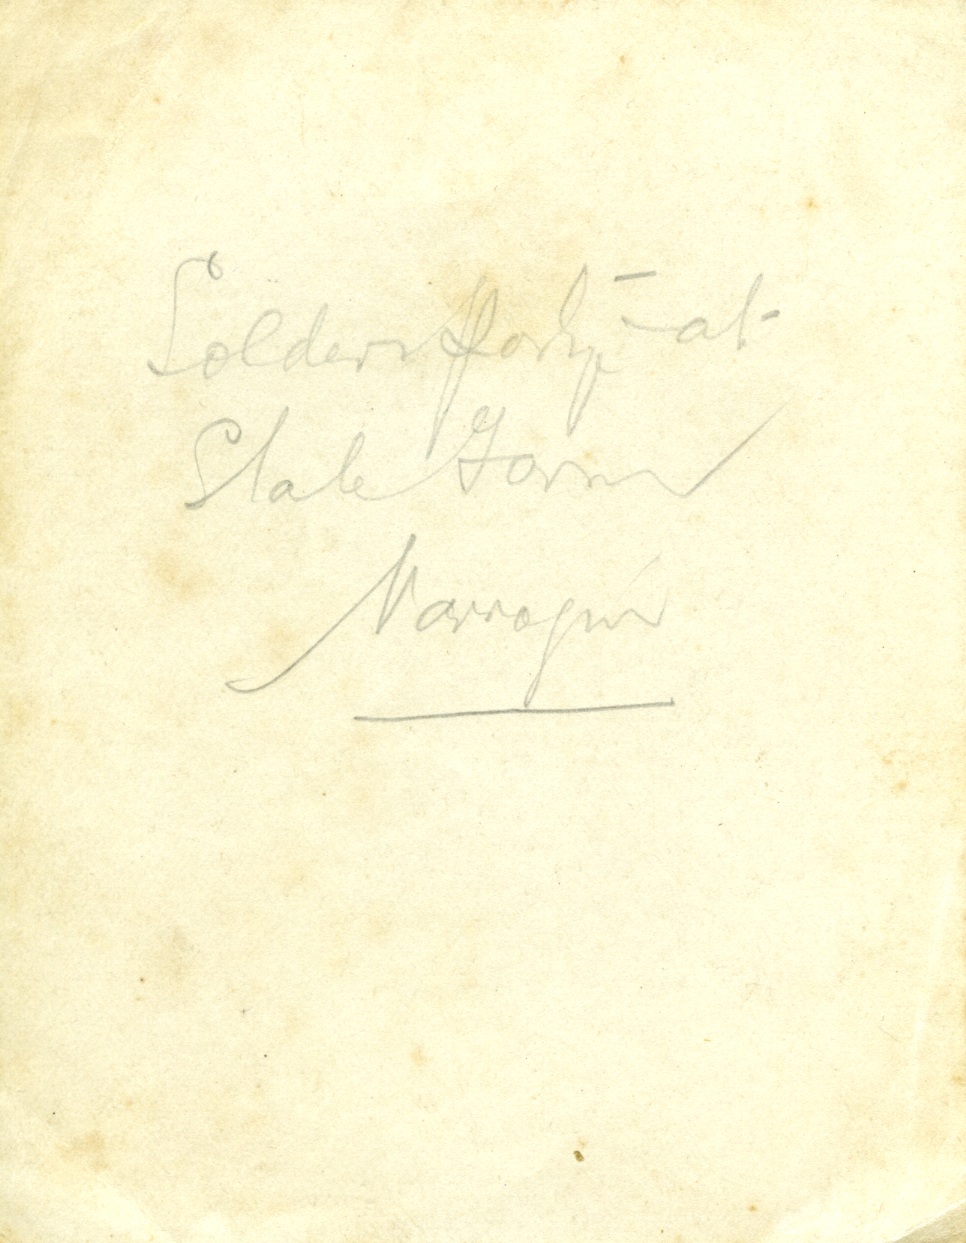 Solders party - at
State Farm
Narrogin